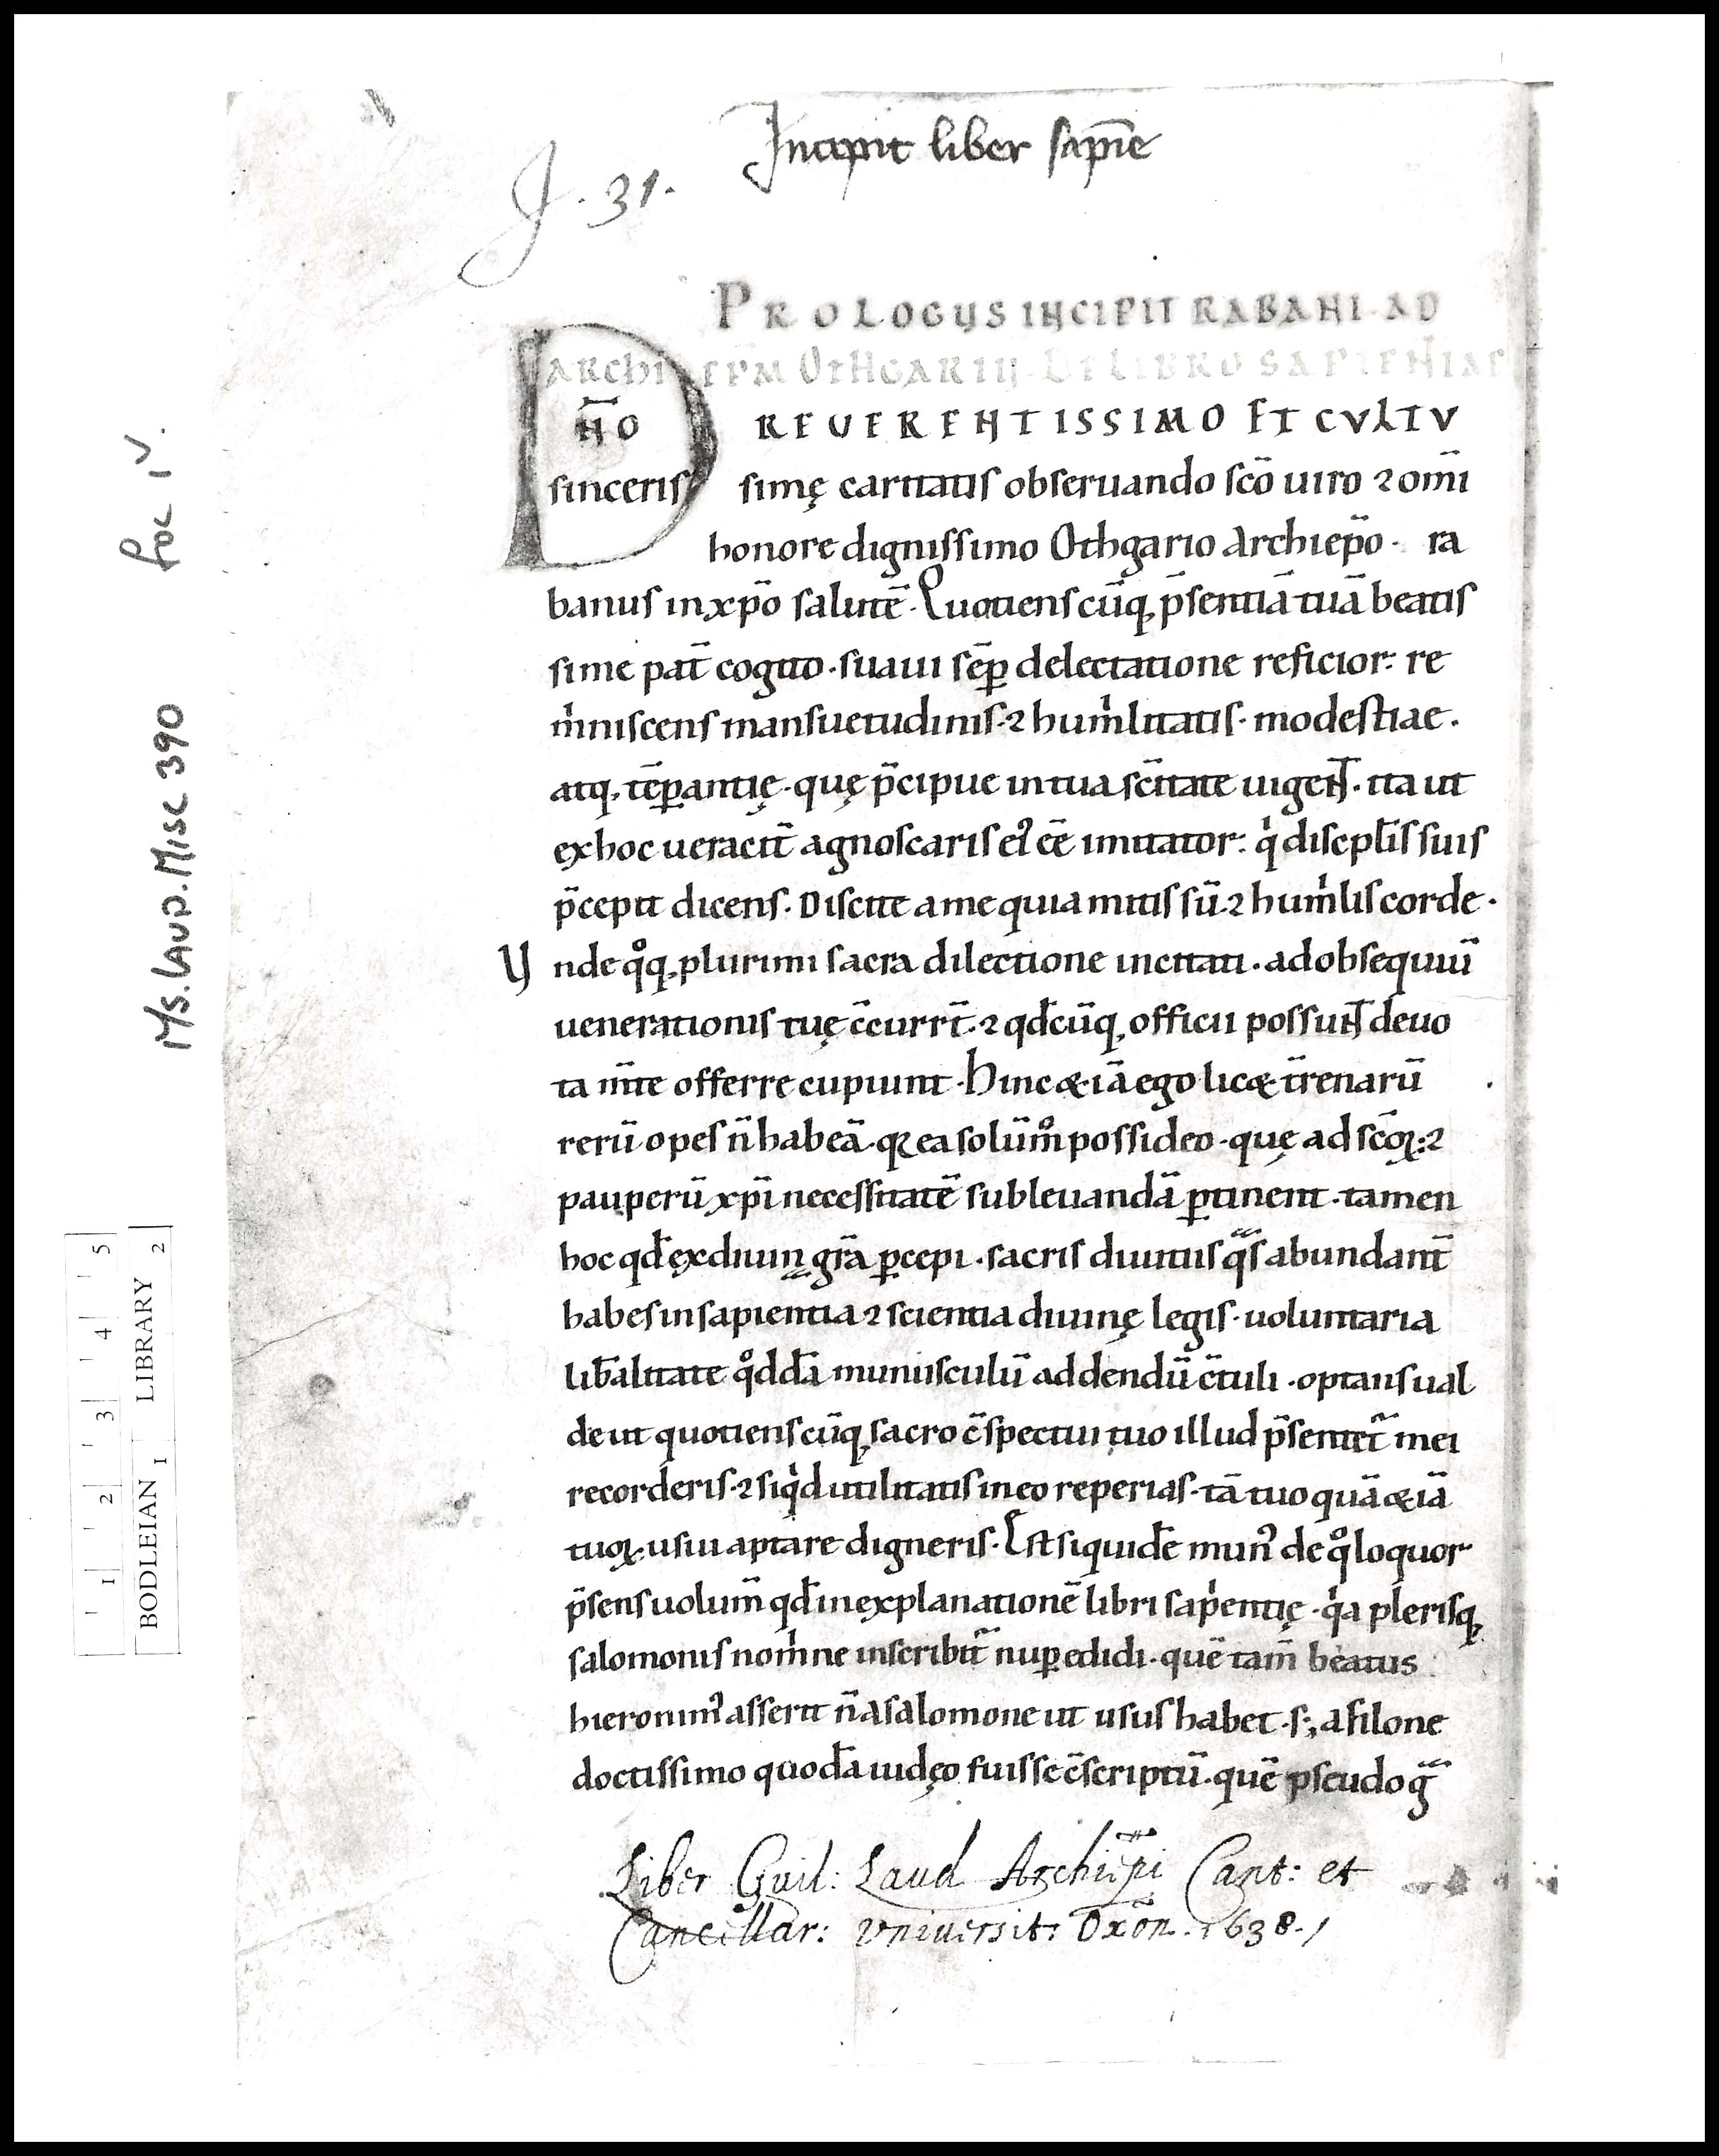 Incipit liber sapie͞
J. 31.
PROLOGUS INCIPIT RABANI. AD
ARCHIEPM OTHGARIU. DE LIBRO SAPIENTIAE
DN̄O REUERENTISSIMO ET CVLTV
sinceris simę caritatis obseruando sc̄o uiro ⁊ om̄i
honore dignissimo Othgario Archiep̄o · ra
banus in xp̄o salutē · Quotienscūq; p̄sentiā tuā beatis
sime pat̄ cogito · suaui sēꝑ delectatione reficior: re
mͥniscens mansuetudinis · ⁊ humͥlitatis · modestiae ·
atq; tēꝑantię · quę p̄cipue in tua sc̄itate uigeNT · ita ut
ex hoc ueracit̄ agnoscaris eiꝰ eē imitator: qͥ discipl̄is suis
p̄cepit dicens · Discite a me quia mitis sū · ⁊ humͥlis corde ·
Vnde qͦq; plurimi sacra dilectione incitati · ad obsequiū
uenerationis tuę c̄currt̄ · ⁊ qd̄cūq; officii possuNT deuo
ta m̄te offerre cupiunt · Hinc & iā ego lic& t̄renarū
rerū opes n̄ habeā · qꝛ ea solūm̊ possideo · quę ad sc̄oꝝ: ⁊
pauperū xp̄i necessitatē subleuandā ꝑtinent · tamen
hoc qd̄ ex diuin̨ gr̄a ꝑcepi · sacris diuitiis qͣs abundant̄
habes in sapientia ⁊ scientia diuinę legis · uoluntaria
lib̄alitate qͦddā munusculū addendū c̄tuli · optans ual
de ut quotienscūq; sacro c̄spectui tuo illud p̄sentet᷑ mei
recorderis · ⁊ siqͥd utilitatis in eo reperias · tā tuo quā & iā
tuoꝝ usui aptare digneris · Est siquidē munꝰ de qͦ loquor
p̄sens uolum̄ qd̄ in explanationē libri sapͥentię · qͥa plerisq;
salomonis nomͥne inscribit᷑ nuꝑ edidi · quē tam̄ beatus
hieronimꝰ asserit n̄ a salomone ut usus habet · s; a filone
doctissimo quodā iudęo fuisse c̄scriptū · quē pseudo gͣ
Liber Guil: Laud Archiepi Cant: et
Cancillar: Vniuersit: Oxōn. 1638.
MS. LAUD. MISC 390 fol. 1v.
1 2 3 4 5
BODLEIAN 1 LIBRARY 2